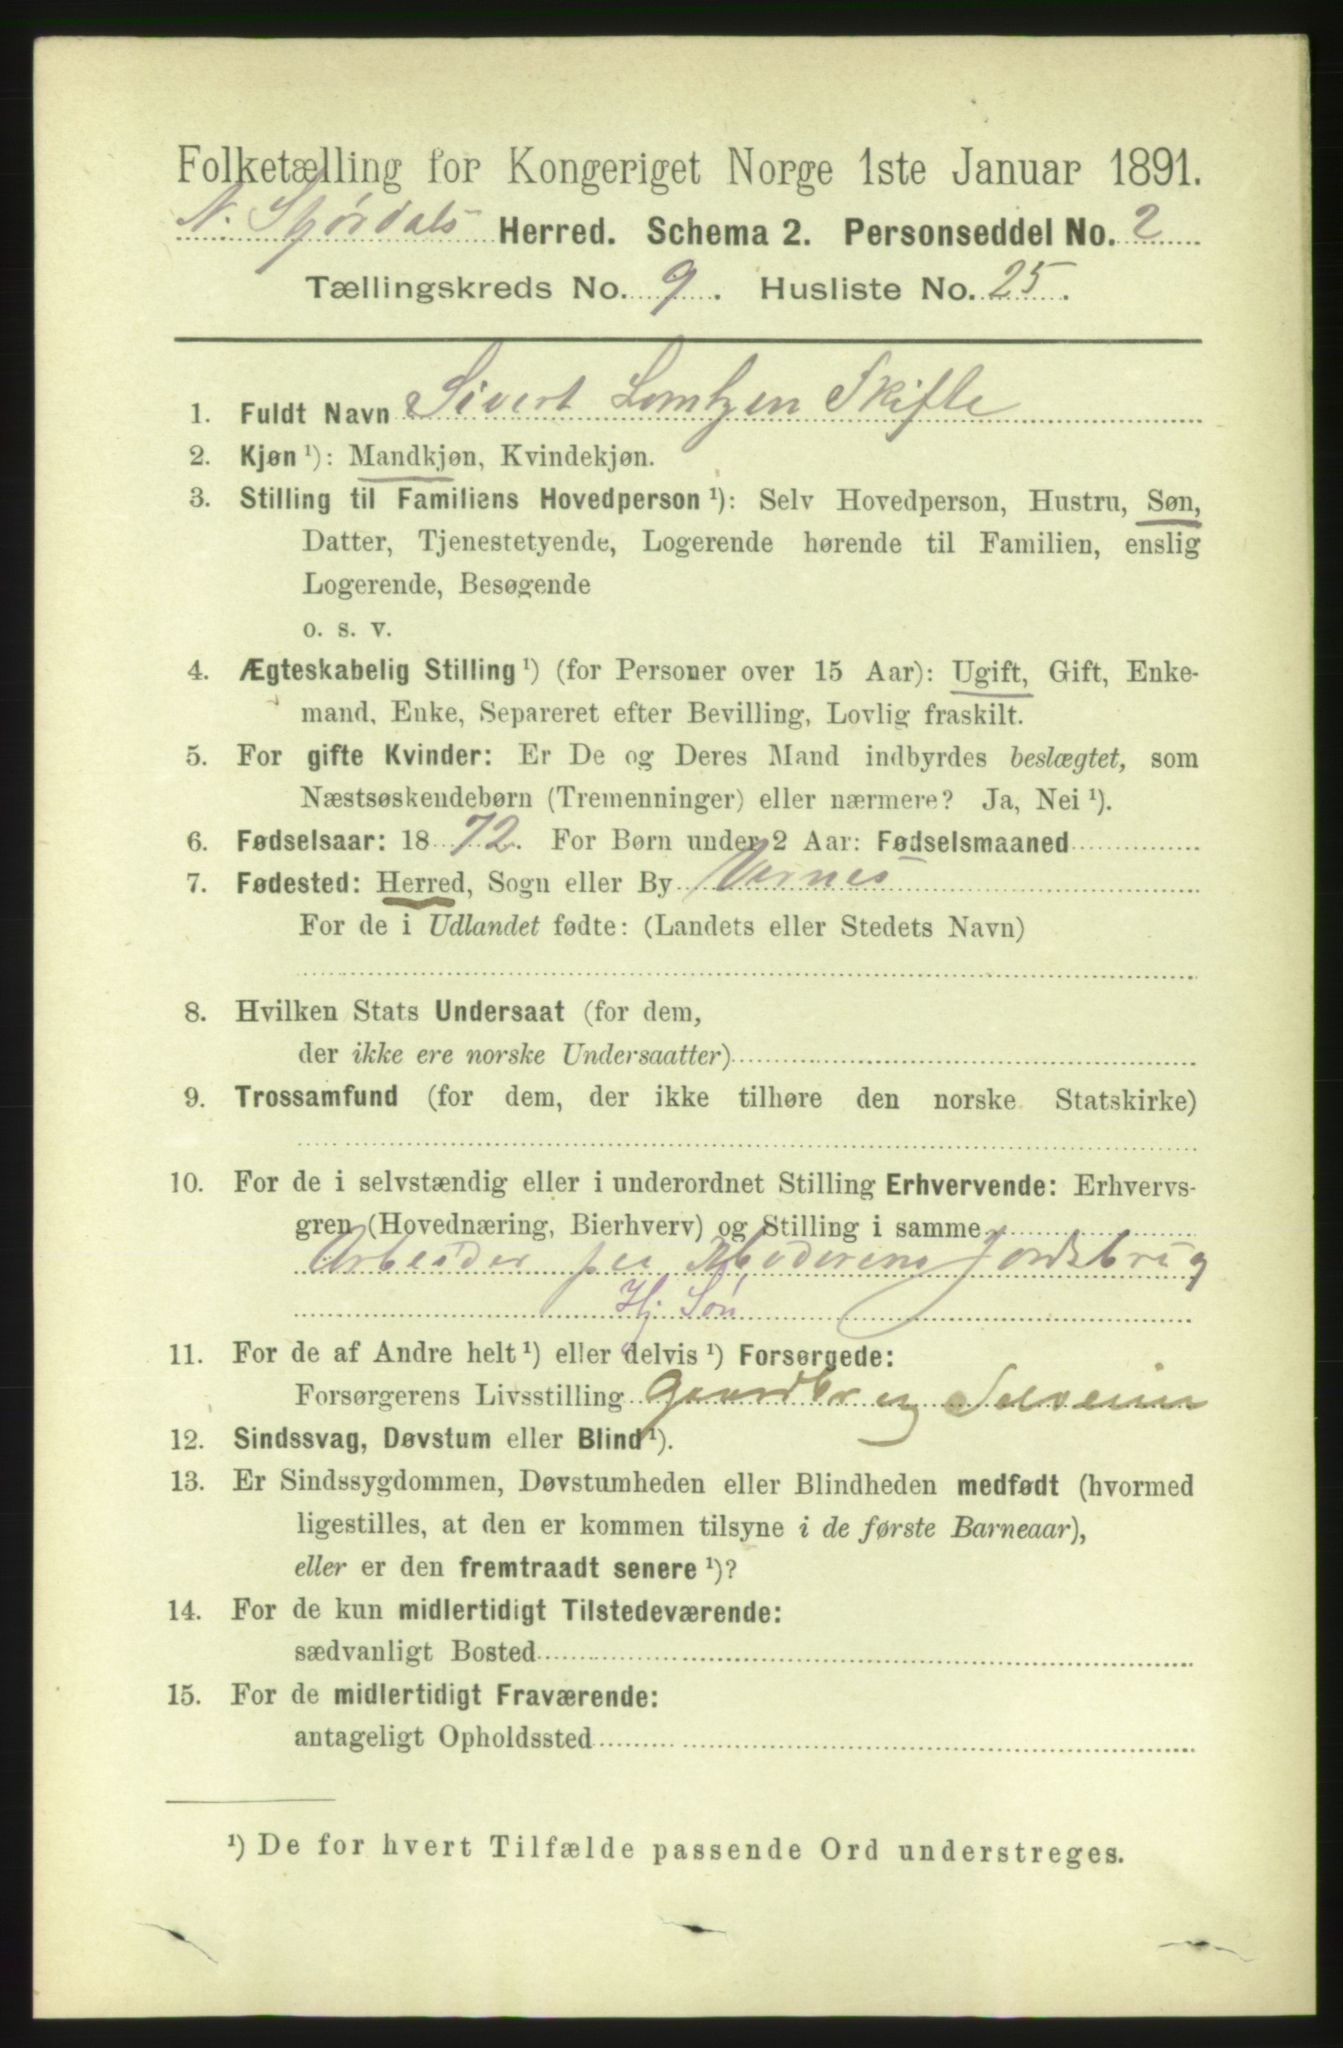 Folketælling for Kongeriget Norge 1ste Januar 1891.
N. Stjørdals Herred. Schema 2. Personseddel No. 2
Tællingskreds No. 9. Husliste No. 25.
1. Fuldt Navn Sivert Lorntzen Skifte
2. Kjøn ¹): Mandkjøn, Kvindekjøn.
3. Stilling til Familiens Hovedperson ¹): Selv Hovedperson, Hustru, Søn,
Datter, Tjenestetyende, Logerende hørende til Familien, enslig
Logerende, Besøgende
o. s. v.
4. Ægteskabelig Stilling ¹) (for Personer over 15 Aar): Ugift, Gift, Enke-
mand, Enke, Separeret efter Bevilling, Lovlig fraskilt.
5. For gifte Kvinder: Er De og Deres Mand indbyrdes beslægtet, som
Næstsøskendebørn (Tremenninger) eller nærmere? Ja, Nei ¹).
6. Fødselsaar: 1872. For Børn under 2 Aar: Fødselsmaaned
7. Fødested: Herred, Sogn eller By Vernes
For de i Udlandet fødte: (Landets eller Stedets Navn)
8. Hvilken Stats Undersaat (for dem,
der ikke ere norske Undersaatter)
9. Trossamfund (for dem, der ikke tilhøre den norske Statskirke)
10. For de i selvstændig eller i underordnet Stilling Erhvervende: Erhvervs-
gren (Hovednæring, Bierhverv) og Stilling i samme
Arbeider paa Moderens Jordsbrug
Hj. Søn
11. For de af Andre helt ¹) eller delvis ¹) Forsørgede:
Forsørgerens Livsstilling Gaardbr og Selveier
12. Sindssvag, Døvstum eller Blind ¹).
13. Er Sindssygdommen, Døvstumheden eller Blindheden medfødt (hvormed
ligestilles, at den er kommen tilsyne i de første Barneaar),
eller er den fremtraadt senere ¹)?
14. For de kun midlertidigt Tilstedeværende:
sædvanligt Bosted
15. For de midlertidigt Fraværende:
antageligt Opholdssted
¹) De for hvert Tilfælde passende Ord understreges.